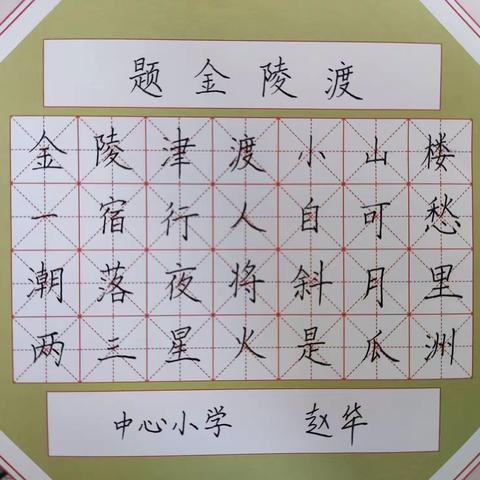 题金陵渡
金陵津渡小山楼
一宿行人自可愁
朝落夜将斜月里
两三星火是瓜洲
中心小学 赵华